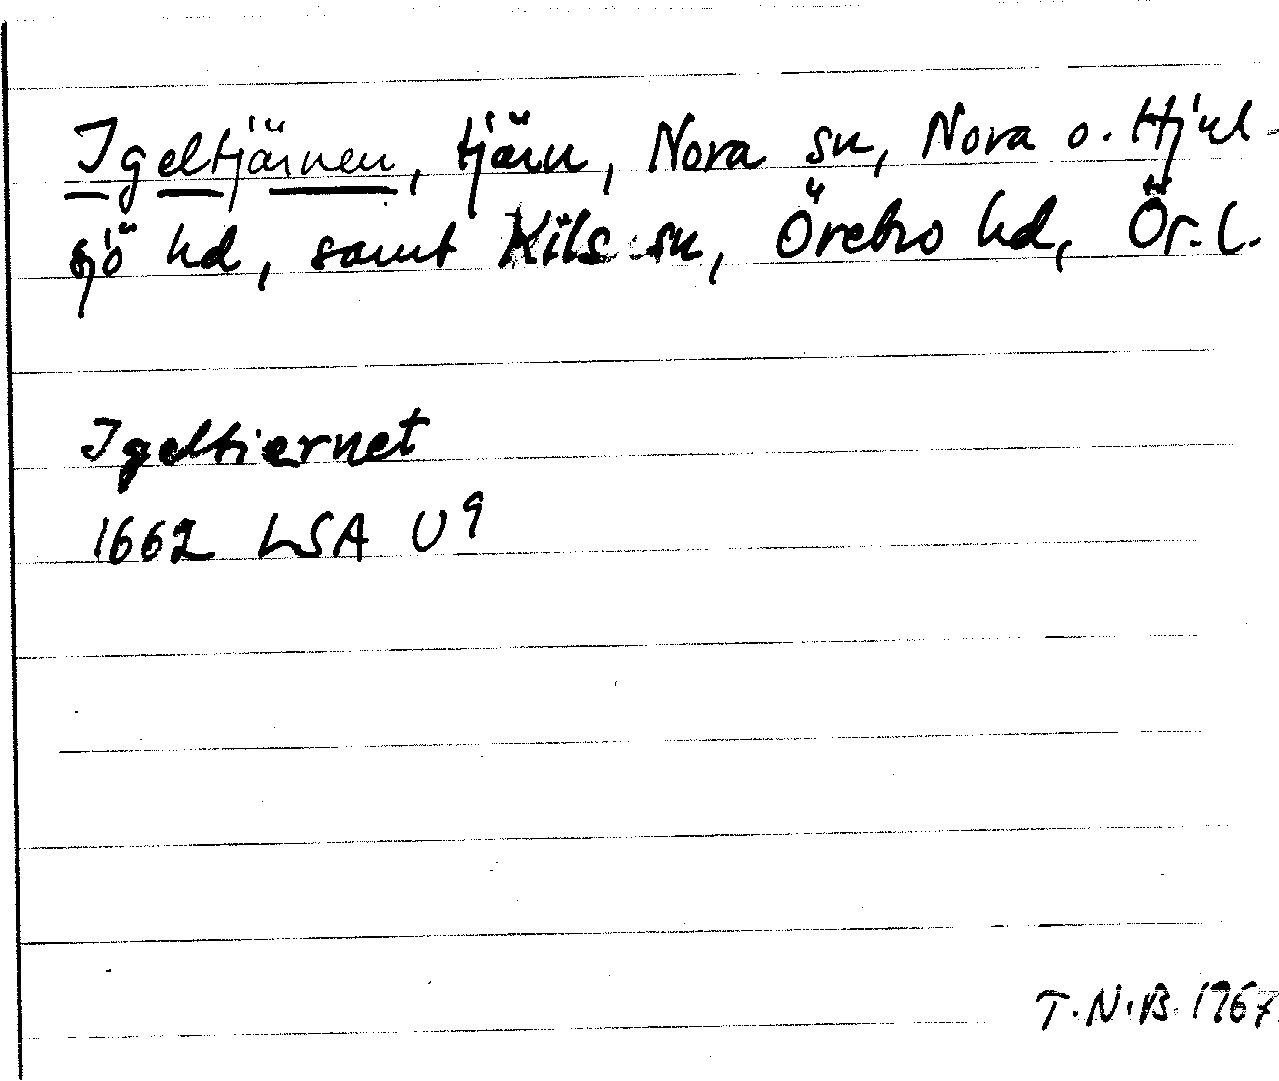 Igeltjärnen, tjärn, Nora sn, Nora o. Hjul-
sjö hd, samt Kils sn, Örebro hd, Ör. l.
Igeltiernet
1662 LSA U9
T.N.B. 1967